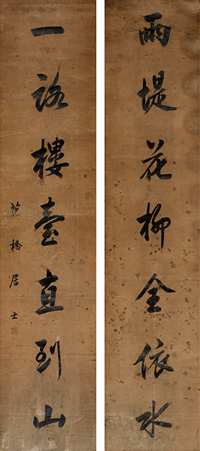 兩堤花柳全依水
一路樓臺直到山
范橋居士